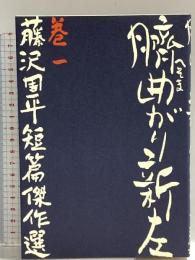 臍曲がり新左
巻一
藤沢周平短篇傑作選